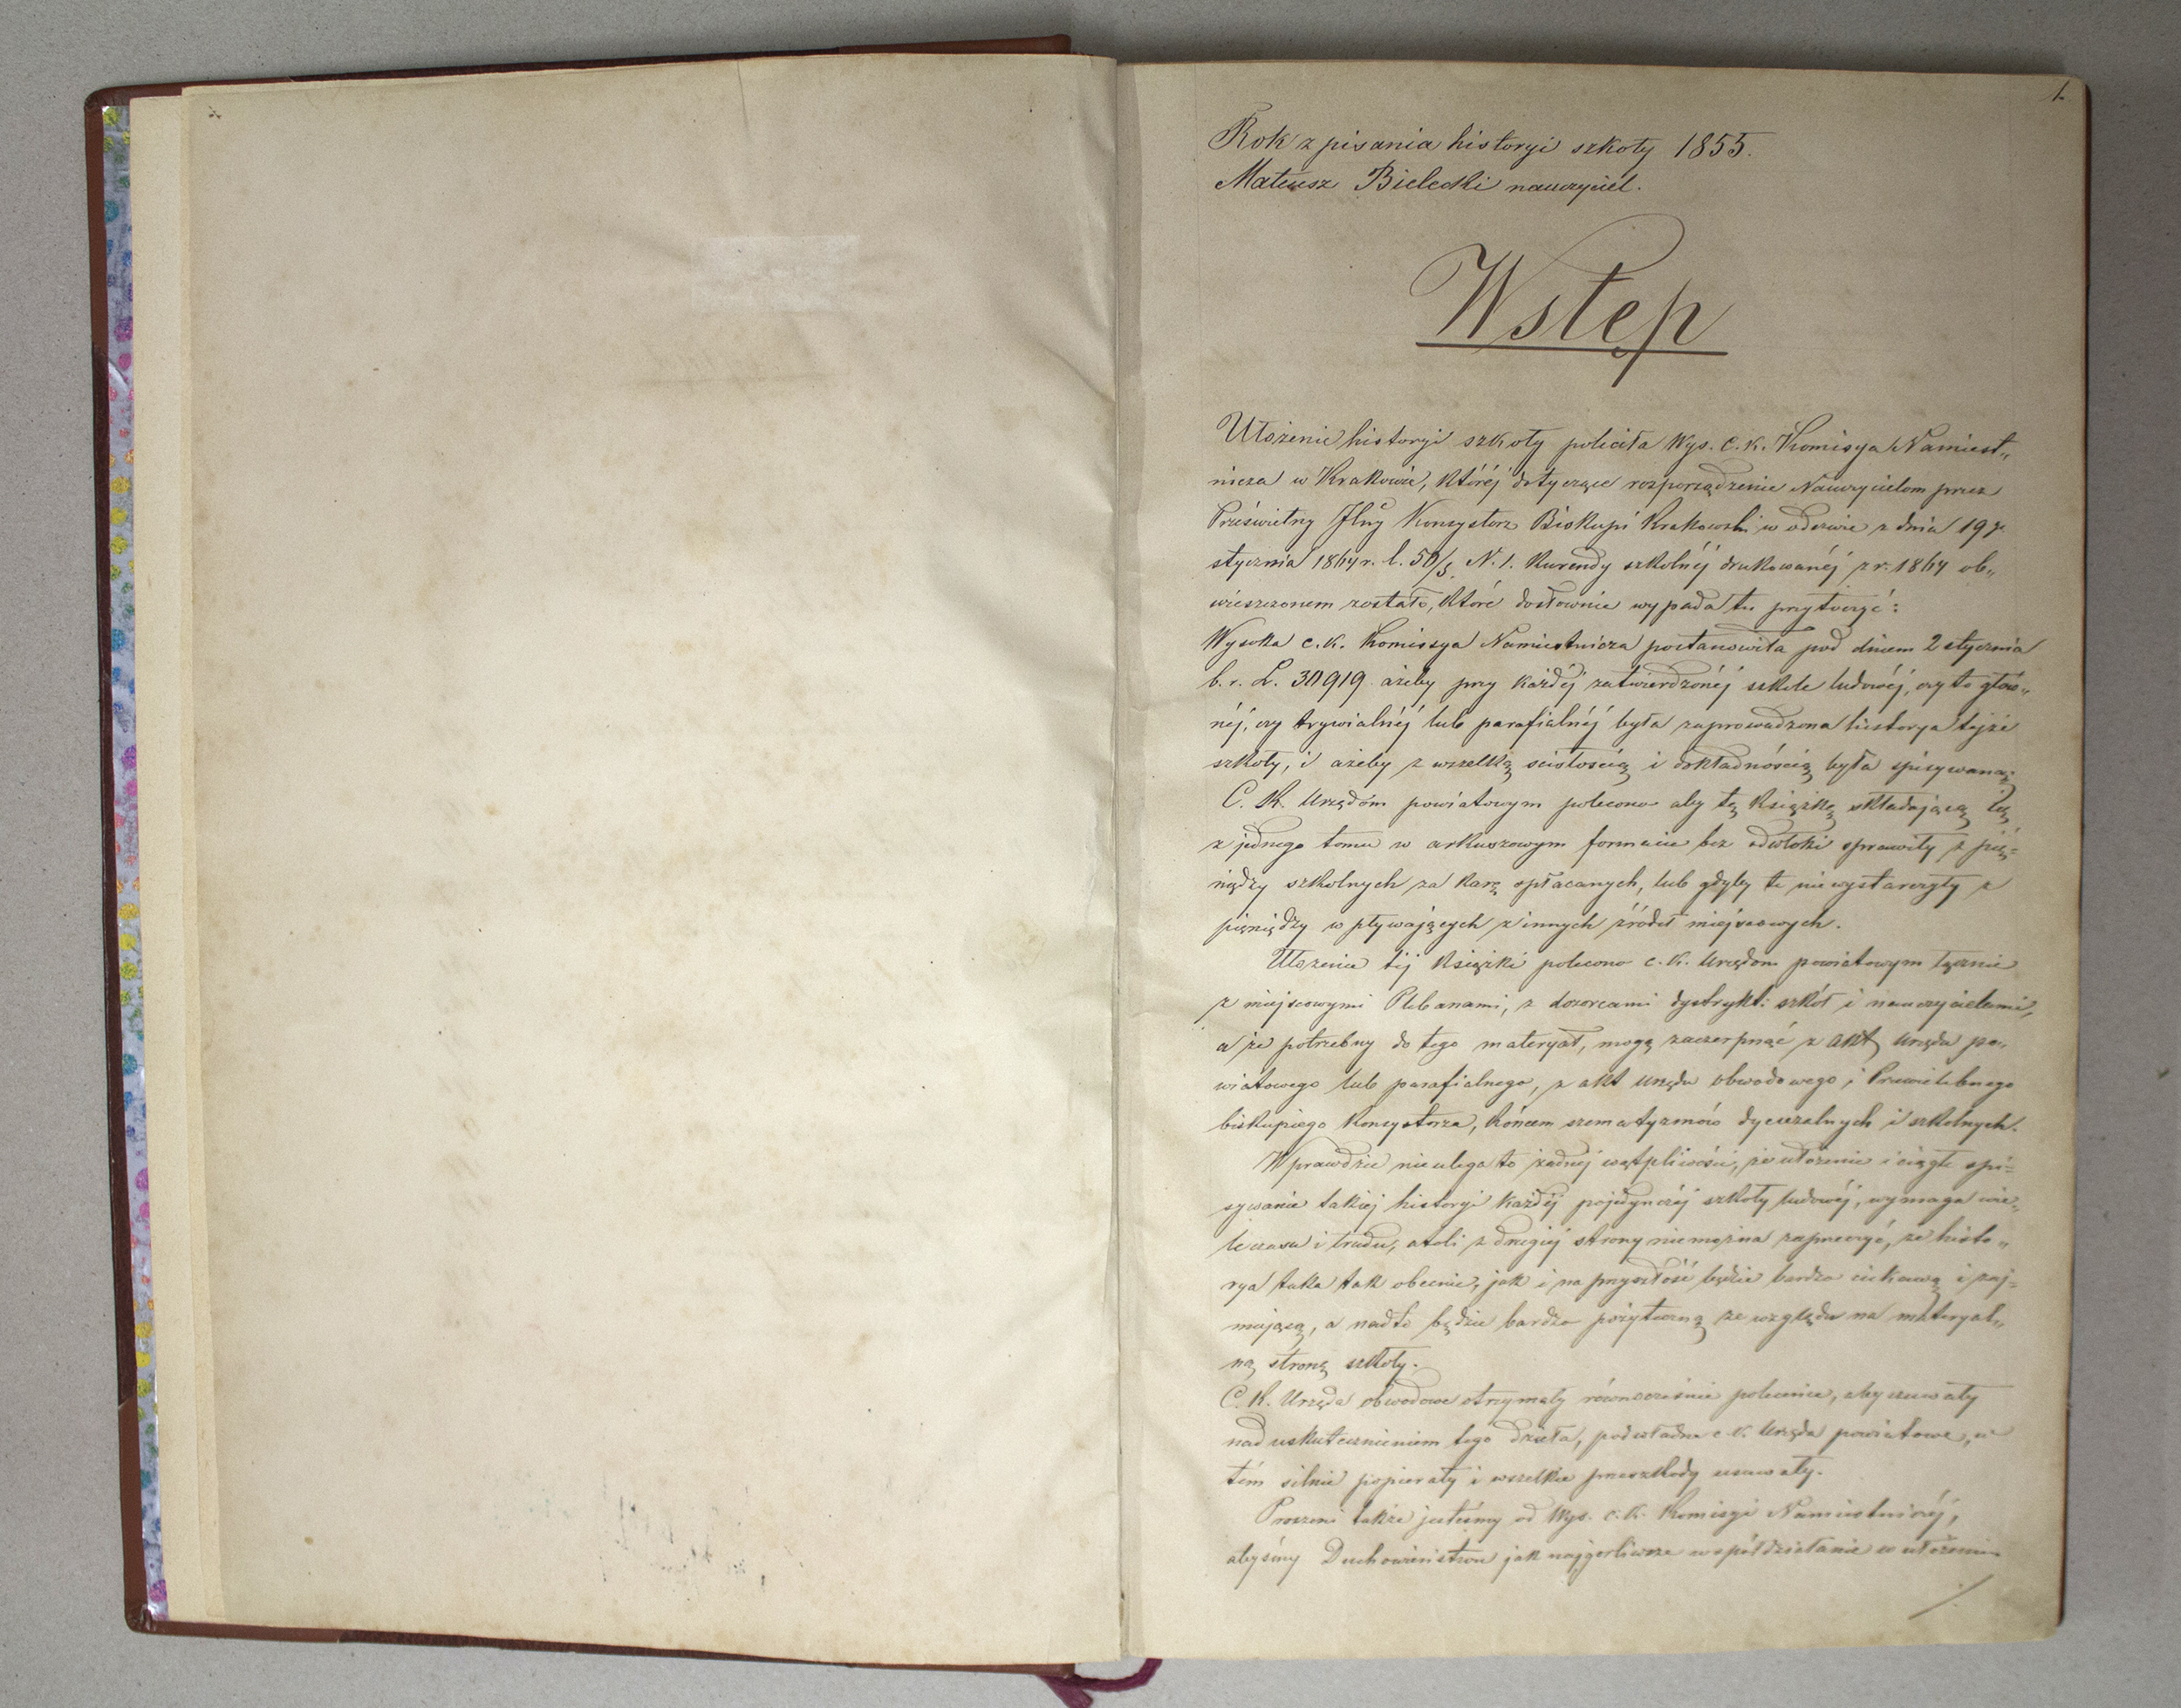 1.
Rok z pisania historyi szkoły 1855.
Mateusz Bielecki nauczyciel.
Wstęp
Ułożenie historyi szkoły poleciła Wys. C. K. Komisya Namiest„
nicza w Krakowie, któréj dotyczące rozporządzenie Nauczycielom przez
Prześwietny Jlny Konsystorz Biskupi Krakowski w odezwie z dnia 19go
stycznia 1864 r. l. 50/S. N. 1. Kurendy szkolnéj drukowanéj z r. 1864 ob„
wieszczonem zostało, które dosłownie wypada tu przytoczyć:
Wysoka c. k. Komissya Namiestnicza postanowiła pod dniem 2 stycznia
b. r. L. 30919 ażeby przy każdéj zatwierdzonéj szkole ludowéj, czy to głów„
néj, czy trywialnéj lub parafialnéj była zaprowadzona historya tejże
szkoły, i ażeby z wszelką scisłością i dokładnością była spisywaną.
C. K. Urzędom powiatowym polecono aby tę książkę składającą się
z jednego tomu w arkuszowym formacie bez odwłoki sprawiły z pie=
niędzy szkolnych za karę spłacanych, lub gdyby te nie wystarczyły z
pieniędzy w pływających z innych źródeł miejscowych.
Ułożenie téj książki polecono c. k. Urzędom powiatowym łącznie
z miejscowymi Plebanami, z dozorcami dystrykt: szkół i nauczycielami,
a że potrzebny do tego materyał, mogą zaczerpnąć z akt Urzędu po„
wiatowego lub parafialnego, z akt urzędu obwodowego i Przewielebnego
biskupiego Konsystorza, końcem szematyzmów dyecezalnych i szkolnych.
Wprawdzie nie ulega to żadnéj wątpliwości, że ułożenie i ciągłe spi=
sywanie takiej historyi każdéj pojedynczéj szkoły ludowéj, wymaga wie„
le czasu i trudu, atoli z drugiéj strony nie można zaprzeczyć, że histo„
rya taka tak obecnie, jak i na przyszłość będzie bardzo ciekawą i zaj=
mującą, a nadto będzie bardzo pożyteczną ze względu na materyal„
ną stronę szkoły.
C. K. Urzęda obwodowe otrzymały równocześnie polecenie, aby czuwały
nad uskutecznieniem tego dzieła, podwładne c. k. Urzęda powiatowe, w
tém silnie popierały i wszelkie przeszkody usuwały.
Proszeni także jesteśmy od Wys. c. k. Komisyi Namiestniczéj,
abyśmy Duchowieństwu jak najgorliwsze współdziałanie w ułożeniu